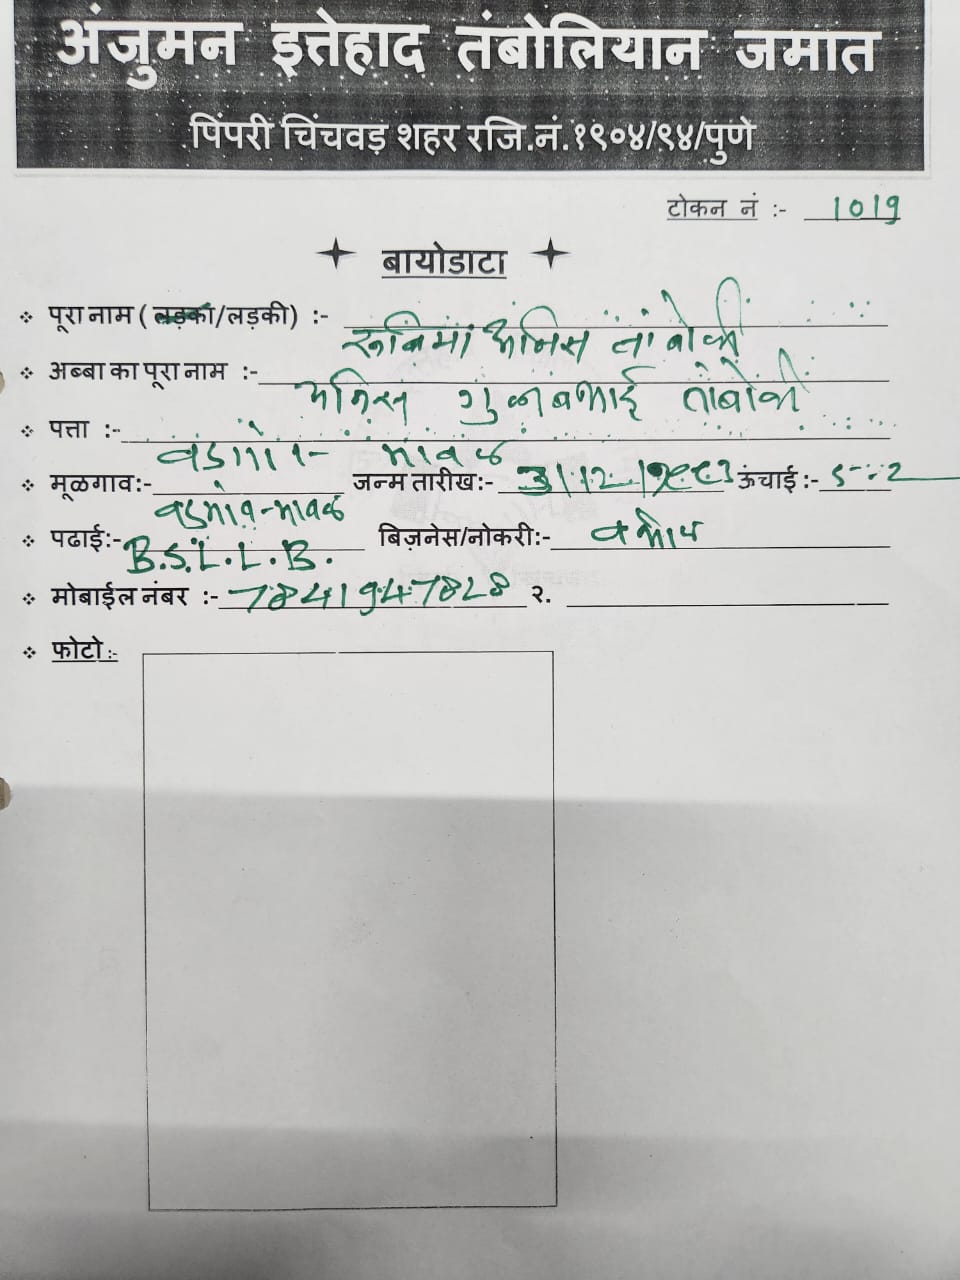 अंजुमन इत्तेहाद तंबोलियान जमात
पिंपरी चिंचवड़ शहर रजि.नं.१९०४/९४/पुणे
टोकन नं :- 1019
बायोडाटा
पूरा नाम ( लड़का/लड़की) :- अनिस तांबोळी
अब्बा का पूरा नाम :- अनिस गुलाबभाई तांबोळी
पत्ता :- वडगांव - मावळ
मूळगाव:- वडगांव-मावळ जन्म तारीख:- ऊंचाई :-
पढाई:- B.S.L.L.B. बिज़नेस/नोकरी:- वकील
मोबाईल नंबर :- 7841947828 २.
फोटो :-